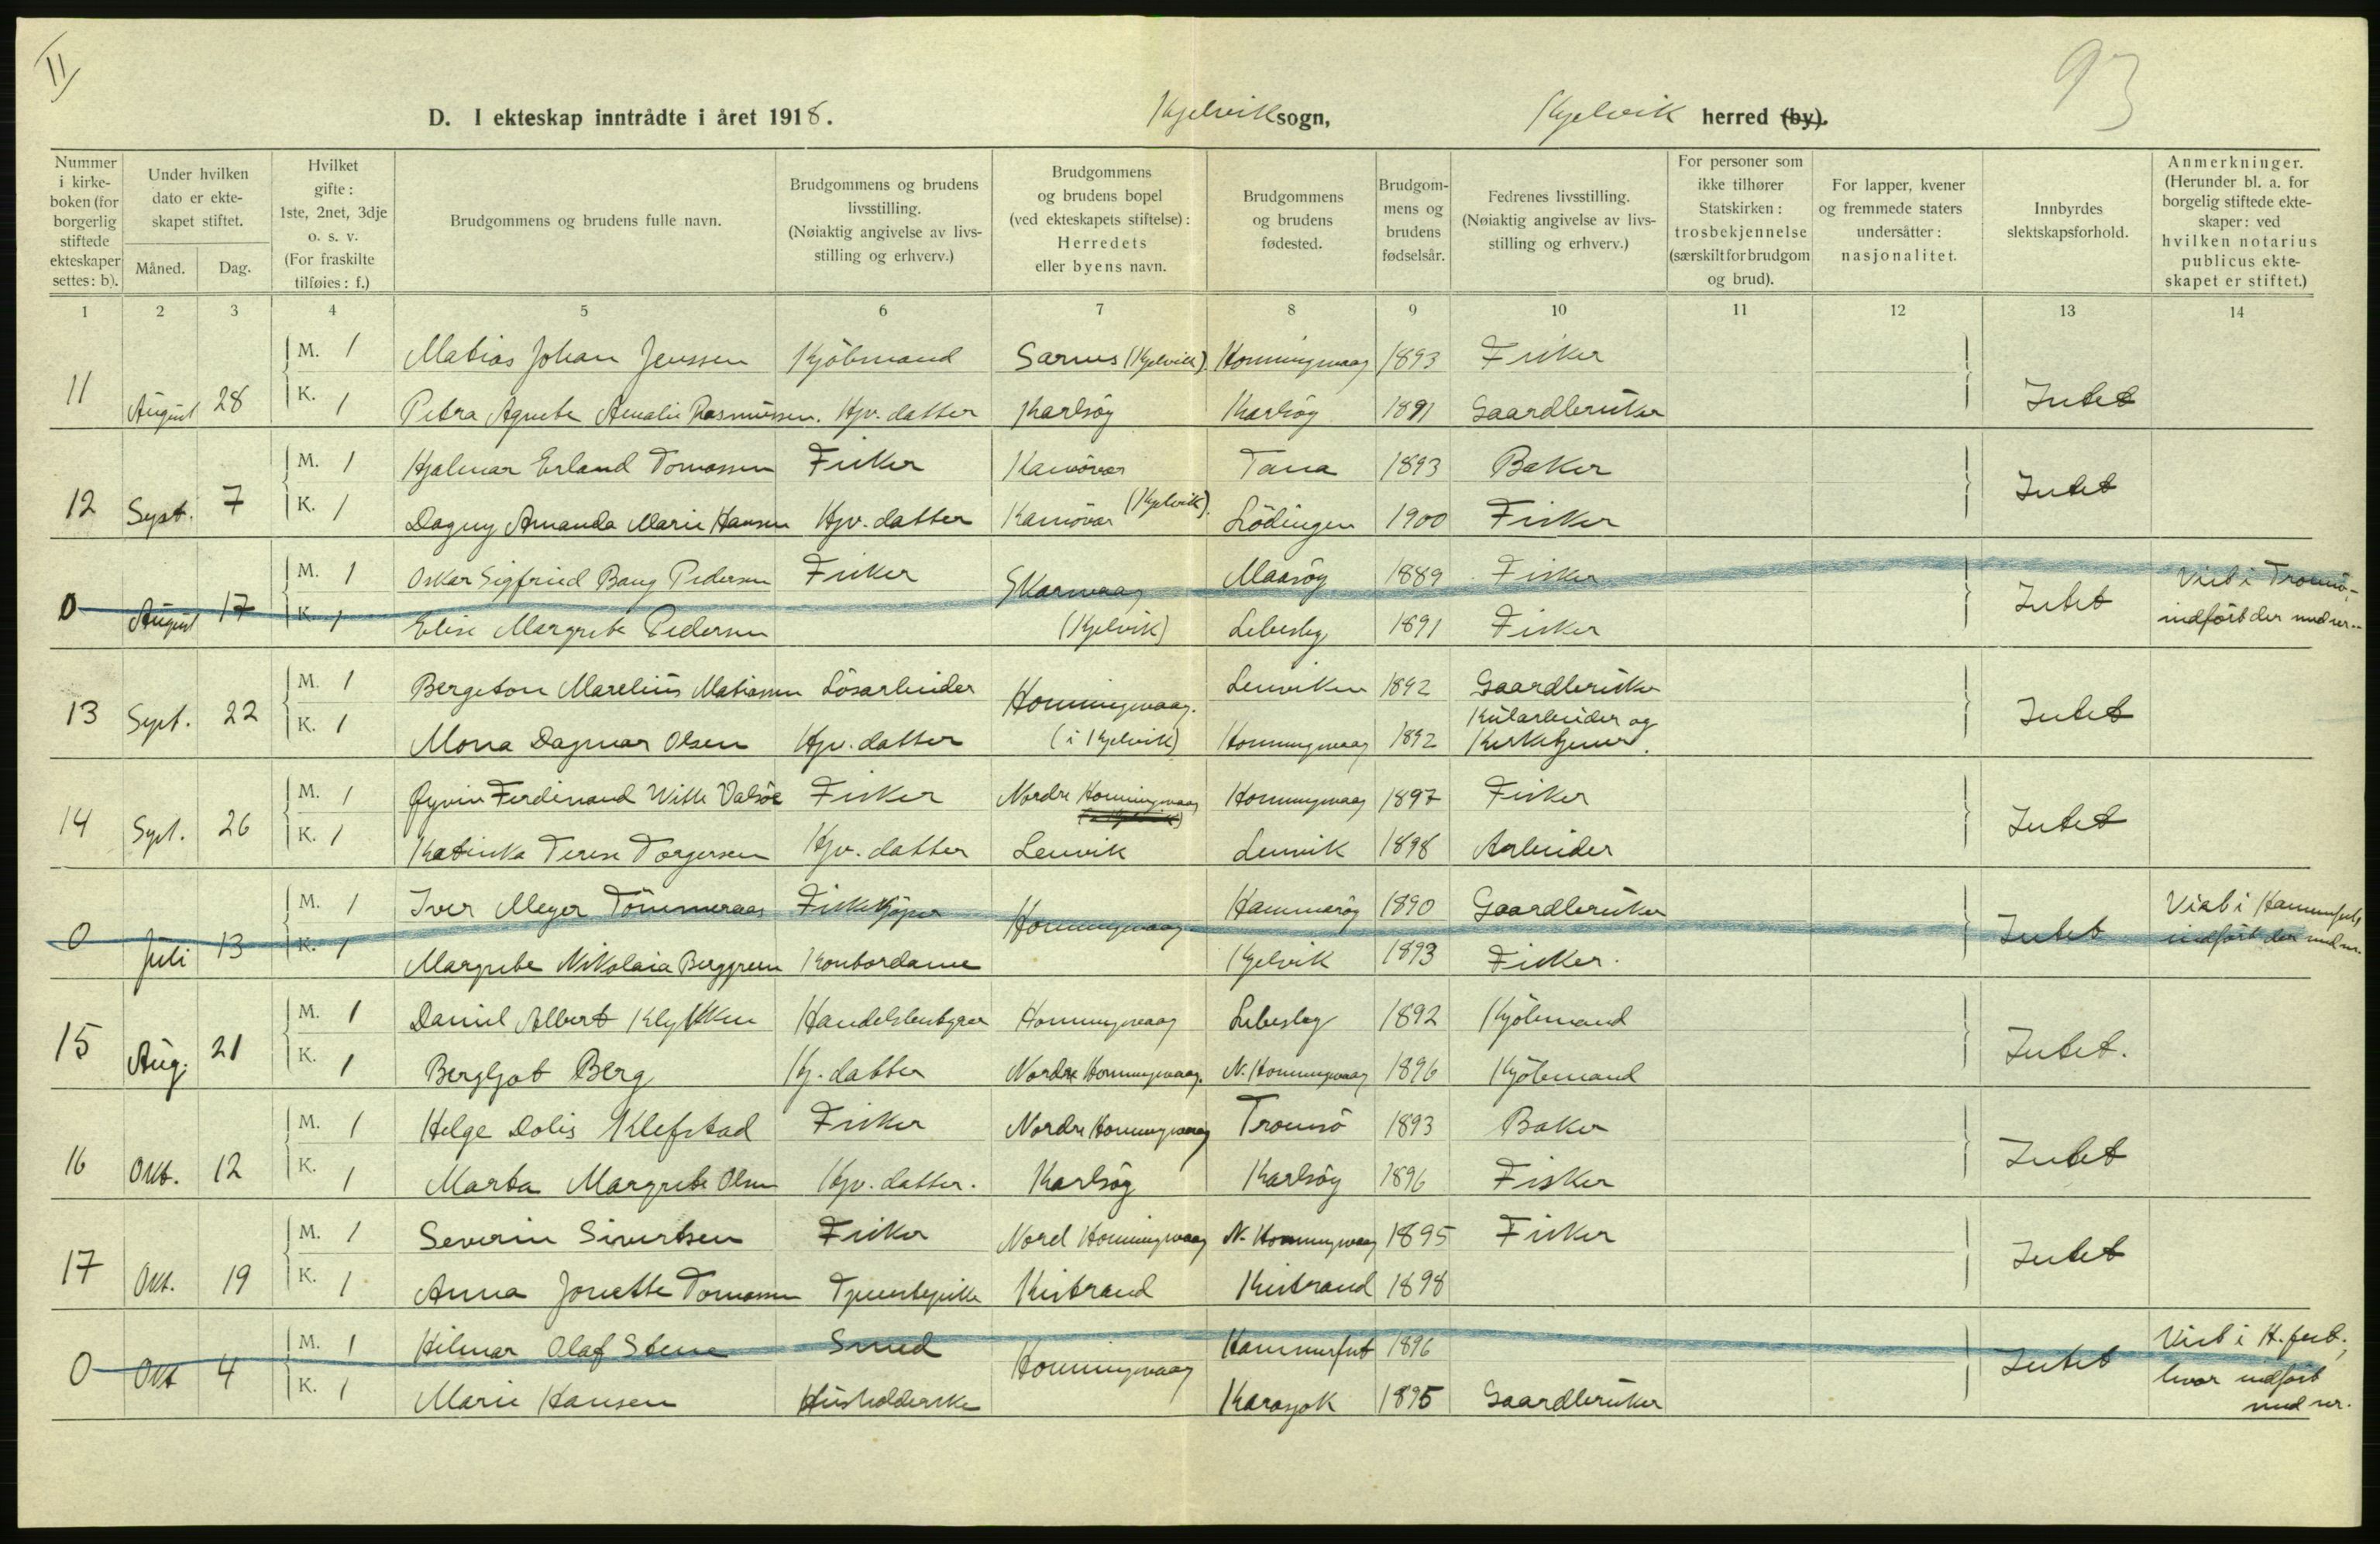 II
93
D. I ekteskap inntrådte i året 1918.
Kjelvik sogn,
Kjelvik herred (by).
Nummer i kirkeboken (for borgerlig stiftede ekteskaper settes: b).
Under hvilken dato er ekteskapet stiftet.
Måned. Dag.
Hvilket gifte: 1ste, 2net, 3dje o. s. v. (For fraskilte tilføies: f.)
Brudgommens og brudens fulle navn.
Brudgommens og brudens livsstilling. (Nøiaktig angivelse av livsstilling og erhverv.)
Brudgommens og brudens bopel (ved ekteskapets stiftelse): Herredets eller byens navn.
Brudgommens og brudens fødested.
Brudgommens og brudens fødselsår.
Fedrenes livsstilling. (Nøiaktig angivelse av livsstilling og erhverv.)
For personer som ikke tilhører Statskirken: trosbekjennelse (særskilt for brudgom og brud).
For lapper, kvener og fremmede staters undersåtter: nasjonalitet.
Innbyrdes slektskapsforhold.
Anmerkninger. (Herunder bl. a. for borgelig stiftede ekteskaper: ved hvilken notarius publicus ekteskapet er stiftet.)
1 2 3 4 5 6 7 8 9 10 11 12 13 14
M. 1 Matias Johan Jenssen Kjöbmand Sarnes (Kjelvik). Honningsvaag 1893 Fisker
11 August 28 K. 1 Petra Agnete Amalie Rasmussen. Hjv. datter Karlsöy Karlsöy 1891 Gaardbruker Intet
M. 1 Hjalmar Erland Tomassen Fisker Kamövær Tana 1893 Baker
12 Sept. 7 K. 1 Dagny Amanda Marie Hansen Hjv. datter Kamövær (Kjelvik). Lödingen 1900 Fisker Intet
M. 1 Oskar Sigfried Bang Pedersen Fisker Skarsvaag Maasöy 1889 Fisker Viet i Tromsö,
0 August 17 K. 1 Elise Margrete Pedersen (Kjelvik) Lebesby 1891 Fisker Intet indfört der med nr.
M. 1 Bergeton Marelius Matiassen Lösarbeider Honningsvaag. Lenviken 1892 Gaardbruker
13 Sept. 22 K. 1 Mona Dagmar Olsen Hjv. datter (i Kjelvik) Honningsvaag 1892 Kularbeider og Kirketjener. Intet
M. 1 Øyvin Ferdinand Witte Valsöe Fisker Nordre Honningsvaag Honningsvaag 1897 Fisker
14 Sept. 26 K. 1 Katinka Terese Torgersen Hjv. datter Lenvik Lenvik 1898 Arbeider Intet
M. 1 Iver Meyer Tömmeraas Fiskekjöper Honningsvaag Hammeröy 1890 Gaardbruker Viet i Hammerfest,
0 Juli 13 K. 1 Margrete Nikolaia Berggreen Kontordame Kjelvik 1893 Fisker. Intet indfört der med nr.
M. 1 Daniel Albert Klykken Handelsbestyrer Honningsvaag Lebesby 1892 Kjöbmand
15 Aug. 21 K. 1 Bergljot Berg Hj. datter Nordre Honningsvaag. N. Honningsvaag 1896 Kjöbmand Intet.
M. 1 Helge Dolis Klefstad Fisker Nordre Honningsvaag Tromsö 1893 Baker
16 Okt. 12 K. 1 Marta Margrete Olsen Hjv. datter. Karlsöy Karlsöy 1896 Fisker Intet
M. 1 Severin Sivertsen Fisker Nord Honningsvaag N. Honningsvaag 1895 Fisker
17 Okt. 19 K. 1 Anna Jonette Tomassen Tjenestepike Kistrand Kistrand 1898 Intet
M. 1 Hilmar Olaf Stene Smed Honningsvaag Hammerfest 1896 Viet i H.fest,
0 Okt 4 K. 1 Marie Hansen Husholderske Karasjok 1895 Gaardbruker Intet hvor indfört
med nr.